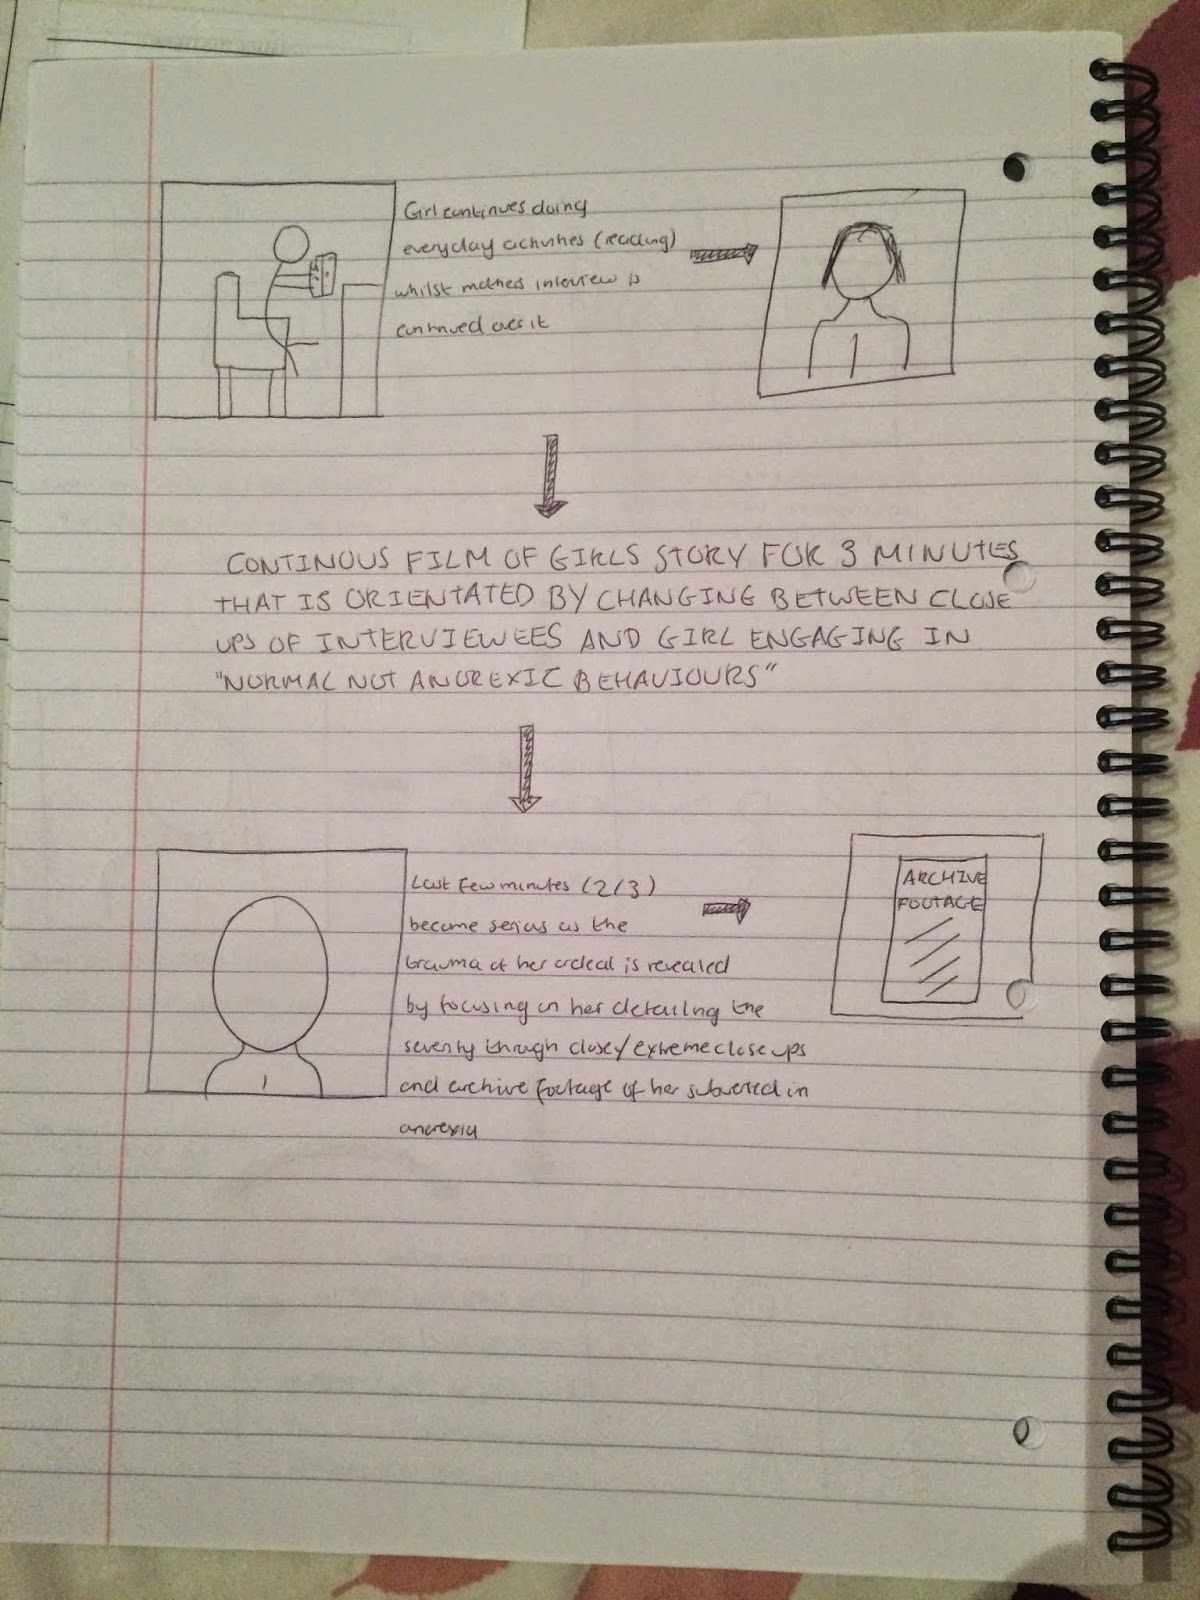 Girl continues doing
everyday activities (reading)
whilst mothers interview is
continued over it
CONTINOUS FILM OF GIRLS STORY FOR 3 MINUTES
THAT IS ORIENTATED BY CHANGING BETWEEN CLOSE
UPS OF INTERVIEWEES AND GIRL ENGAGING IN
"NORMAL NOT ANOREXIC BEHAVIOURS"
Last few minutes (2/3)
become serious as the
trauma of her ordeal is revealed
by focusing on her detailing the
severity through close/extreme close ups
and archive footage of her submerged in
anorexia
ARCHIVE
FOOTAGE